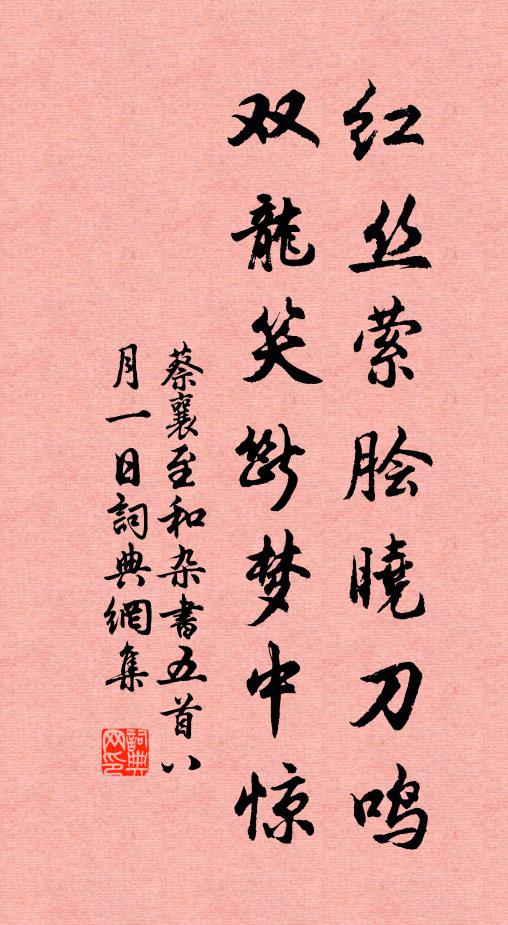 红丝萦脍晓刀鸣
双龍笑断梦中惊
蔡襄至和杂書五首八
月一日詞典網集
詞典网印